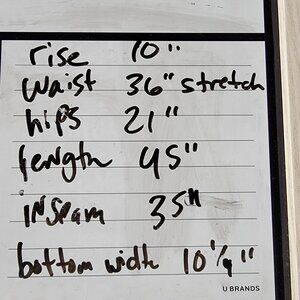 rise 10"
waist 36" stretch
hips 21"
length 45"
inseam 35"
bottom width 10 1/4"
U BRANDS